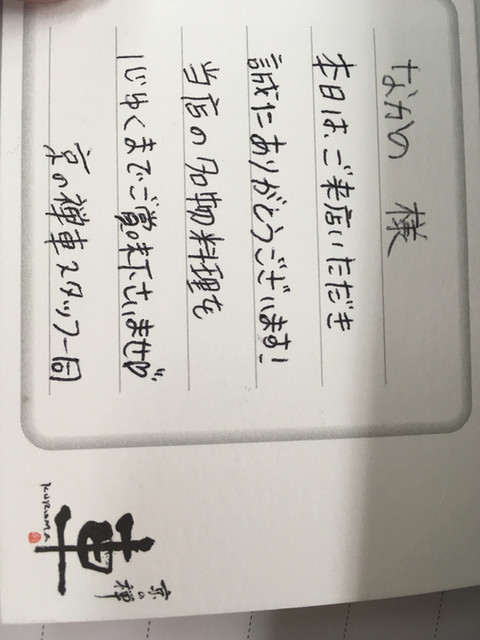 なかの 様
本日は、ご来店いただき
誠にありがとうございます!
当店の名物料理を
じゆくまでご賞味下さいませ♡
京の禅車スタッフ一同
京の禅
車
KURUMA